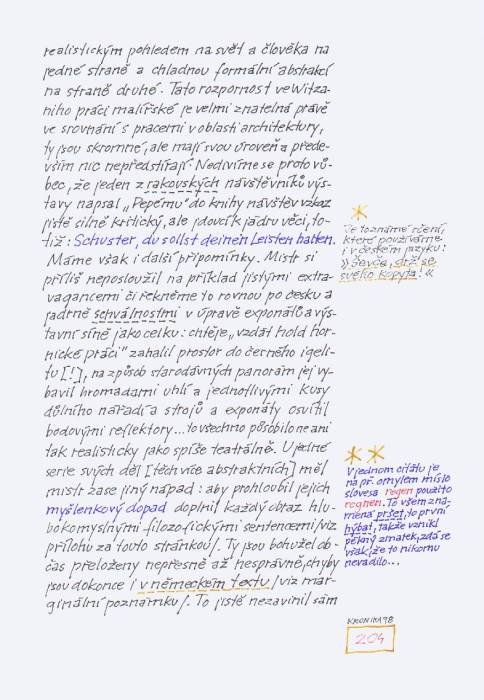 realistickým pohledem na svět a člověka na
jedné straně a chladnou formální abstrakcí
na straně druhé. Tato rozpornost ve Witza-
niho práci malířské je velmi znatelná právě
ve srovnání s pracemi v oblasti architektury,
ty jsou skromné, ale mají svou úroveň a přede-
vším nic nepředstírají. Nedivíme se proto vů-
bec, že jeden z rakovských návštěvníků výs-
tavy napsal „Pepému" do knihy návštěv vzkaz
jistě cílně kritický, ale jdoucí k jádru věci, to-
tiž: Schuster, du sollst deinen Leisten halten.
Máme však i další připomínky. Mistr si
příliš neposloužil na příklad jistými extra-
vagancemi či řekněme to rovnou po česku a
jadrně schválnostmi v úpravě exponátů a výs-
tavní síně jako celku: chtěje „vzdát hold hor-
nické práci" zahalil prostor do černého igeli-
tu [!], na způsob starodávných panoram jej vy-
bavil hromadami uhlí a jednotlivými kusy
důlního nářadí a strojů a exponáty osvítil
bodovými reflektory...to všechno působilo ne ani
tak realisticky jako spíše teatrálně. U jedné
serie svých děl [těch více abstraktních] měl
mistr zase jiný nápad: aby prohloubil jejich
myšlenkový dopad doplnil každý obraz hlu-
bokomyslnými filozofickými sentencemi/viz
přílohu za touto stránkou/. Ty jsou bohužel ob-
čas přeloženy nepřesně až nesprávně, chyby
jsou dokonce i v německém textu /viz mar-
ginální poznámku/. To jistě nezavinil sám
Je to známé rčení,
které používáme
i v českém jazyku:
»Ševče, drž se
svého kopyta!«
V jednom citátu je
např. omylem místo
slovesa regen použito
regnen. To všem zna-
mená pršet, to první
hýbat, takže vznikl
pěkný zmatek, zdá se
však, že to nikomu
nevadilo...
KRONIKA 98
204